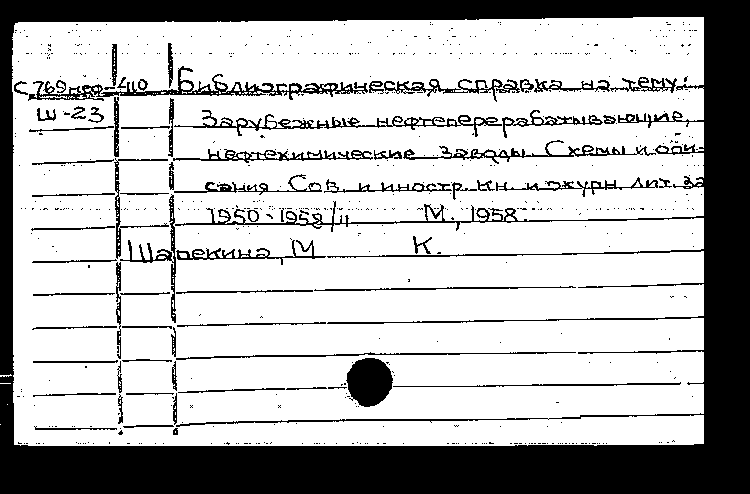 С.769неф-410 Библиографическая справка на тему:
Ш-23 Зарубежные нефтеперерабатывающие,
нефтехимические заводы. Схемы и опи-
сания. Сов. и иностр. кн. и журн. лит. за
1950-1958/II М., 1958.
М К.